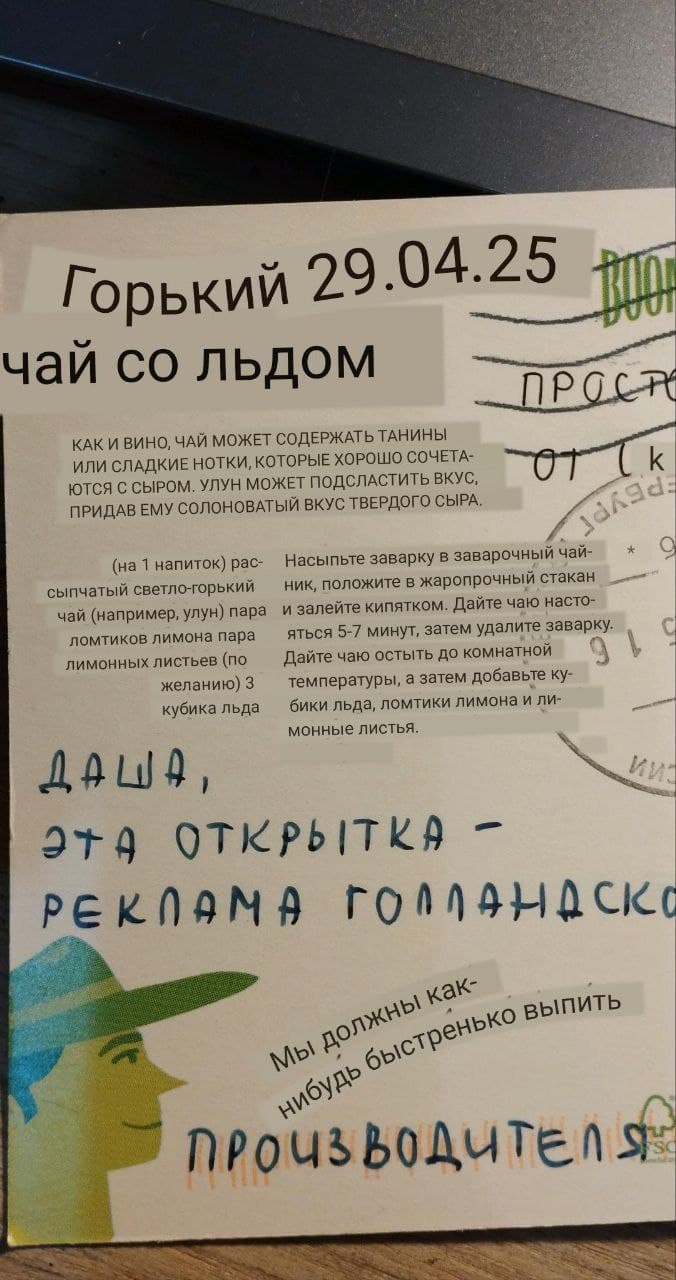 Горький 29.04.25
чай со льдом
BOOM
ПРОСТО
ОТ (к
КАК И ВИНО, ЧАЙ МОЖЕТ СОДЕРЖАТЬ ТАНИНЫ
ИЛИ СЛАДКИЕ НОТКИ, КОТОРЫЕ ХОРОШО СОЧЕТА-
ЮТСЯ С СЫРОМ. УЛУН МОЖЕТ ПОДСЛАСТИТЬ ВКУС,
ПРИДАВ ЕМУ СОЛОНОВАТЫЙ ВКУС ТВЕРДОГО СЫРА.
(на 1 напиток) рас-
сыпчатый светло-горький
чай (например, улун) пара
ломтиков лимона пара
лимонных листьев (по
желанию) 3
кубика льда
Насыпьте заварку в заварочный чай-
ник, положите в жаропрочный стакан
и залейте кипятком. Дайте чаю насто-
яться 5-7 минут, затем удалите заварку.
Дайте чаю остыть до комнатной
температуры, а затем добавьте ку-
бики льда, ломтики лимона и ли-
монные листья.
ДАША,
ЭТА ОТКРЫТКА -
РЕКЛАМА ГОЛЛАНДСКО
Мы должны как-
нибудь быстренько выпить
ПРОИЗВОДИТЕЛЯ
FSC